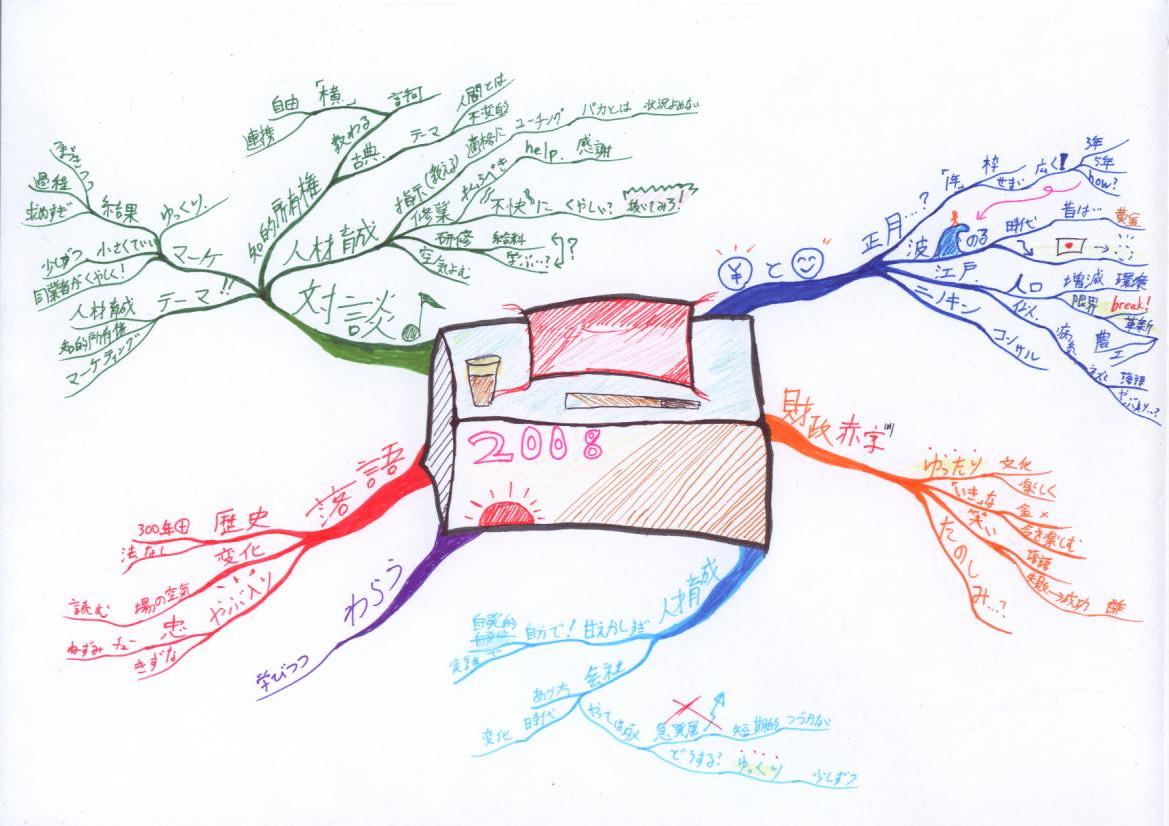 2008
¥ と
正月…?
「年」 枠
せまい 広く!
3年
5年
how?
波 のる
時代 昔は…
黄金
江戸
人口 増減 環境
限界 break!
革新
農
工
病気
落語
ニノキン
コンサル
財政赤字
ゆったり 文化
楽しく
「いき」な 金 ×
今を楽しむ
笑い
落語
失敗→成功 酢
たのしみ…?
人材育成
自分で! 甘えかしすぎ
自発的
会社
あり方
時代
変化
やっては
急発展 短期的 つづかない
どうする? ゆっくり 少しずつ
わらう
学びつつ
落語
歴史
300年
法なし
変化
場の空気
読む
やぶ入り
忠
ねずみ
きずな
対談
テーマ!!
人材育成
知的所有権
マーケティング
マーケ
ゆっくり.
結果
過程
求めすぎ
小さくていい
少しずつ
同業者がくやしく!
知的所有権
教わる
「横」
自由
連携
古典
テーマ
人間とは
不変的
人材育成
指示(教える)
適格に
コーチング
バカとは 状況よめない
修業
help. 感謝
"不快"に くやしい? 抜いてみろ!
研修 給料
学ぶ…?
?
空気よむ